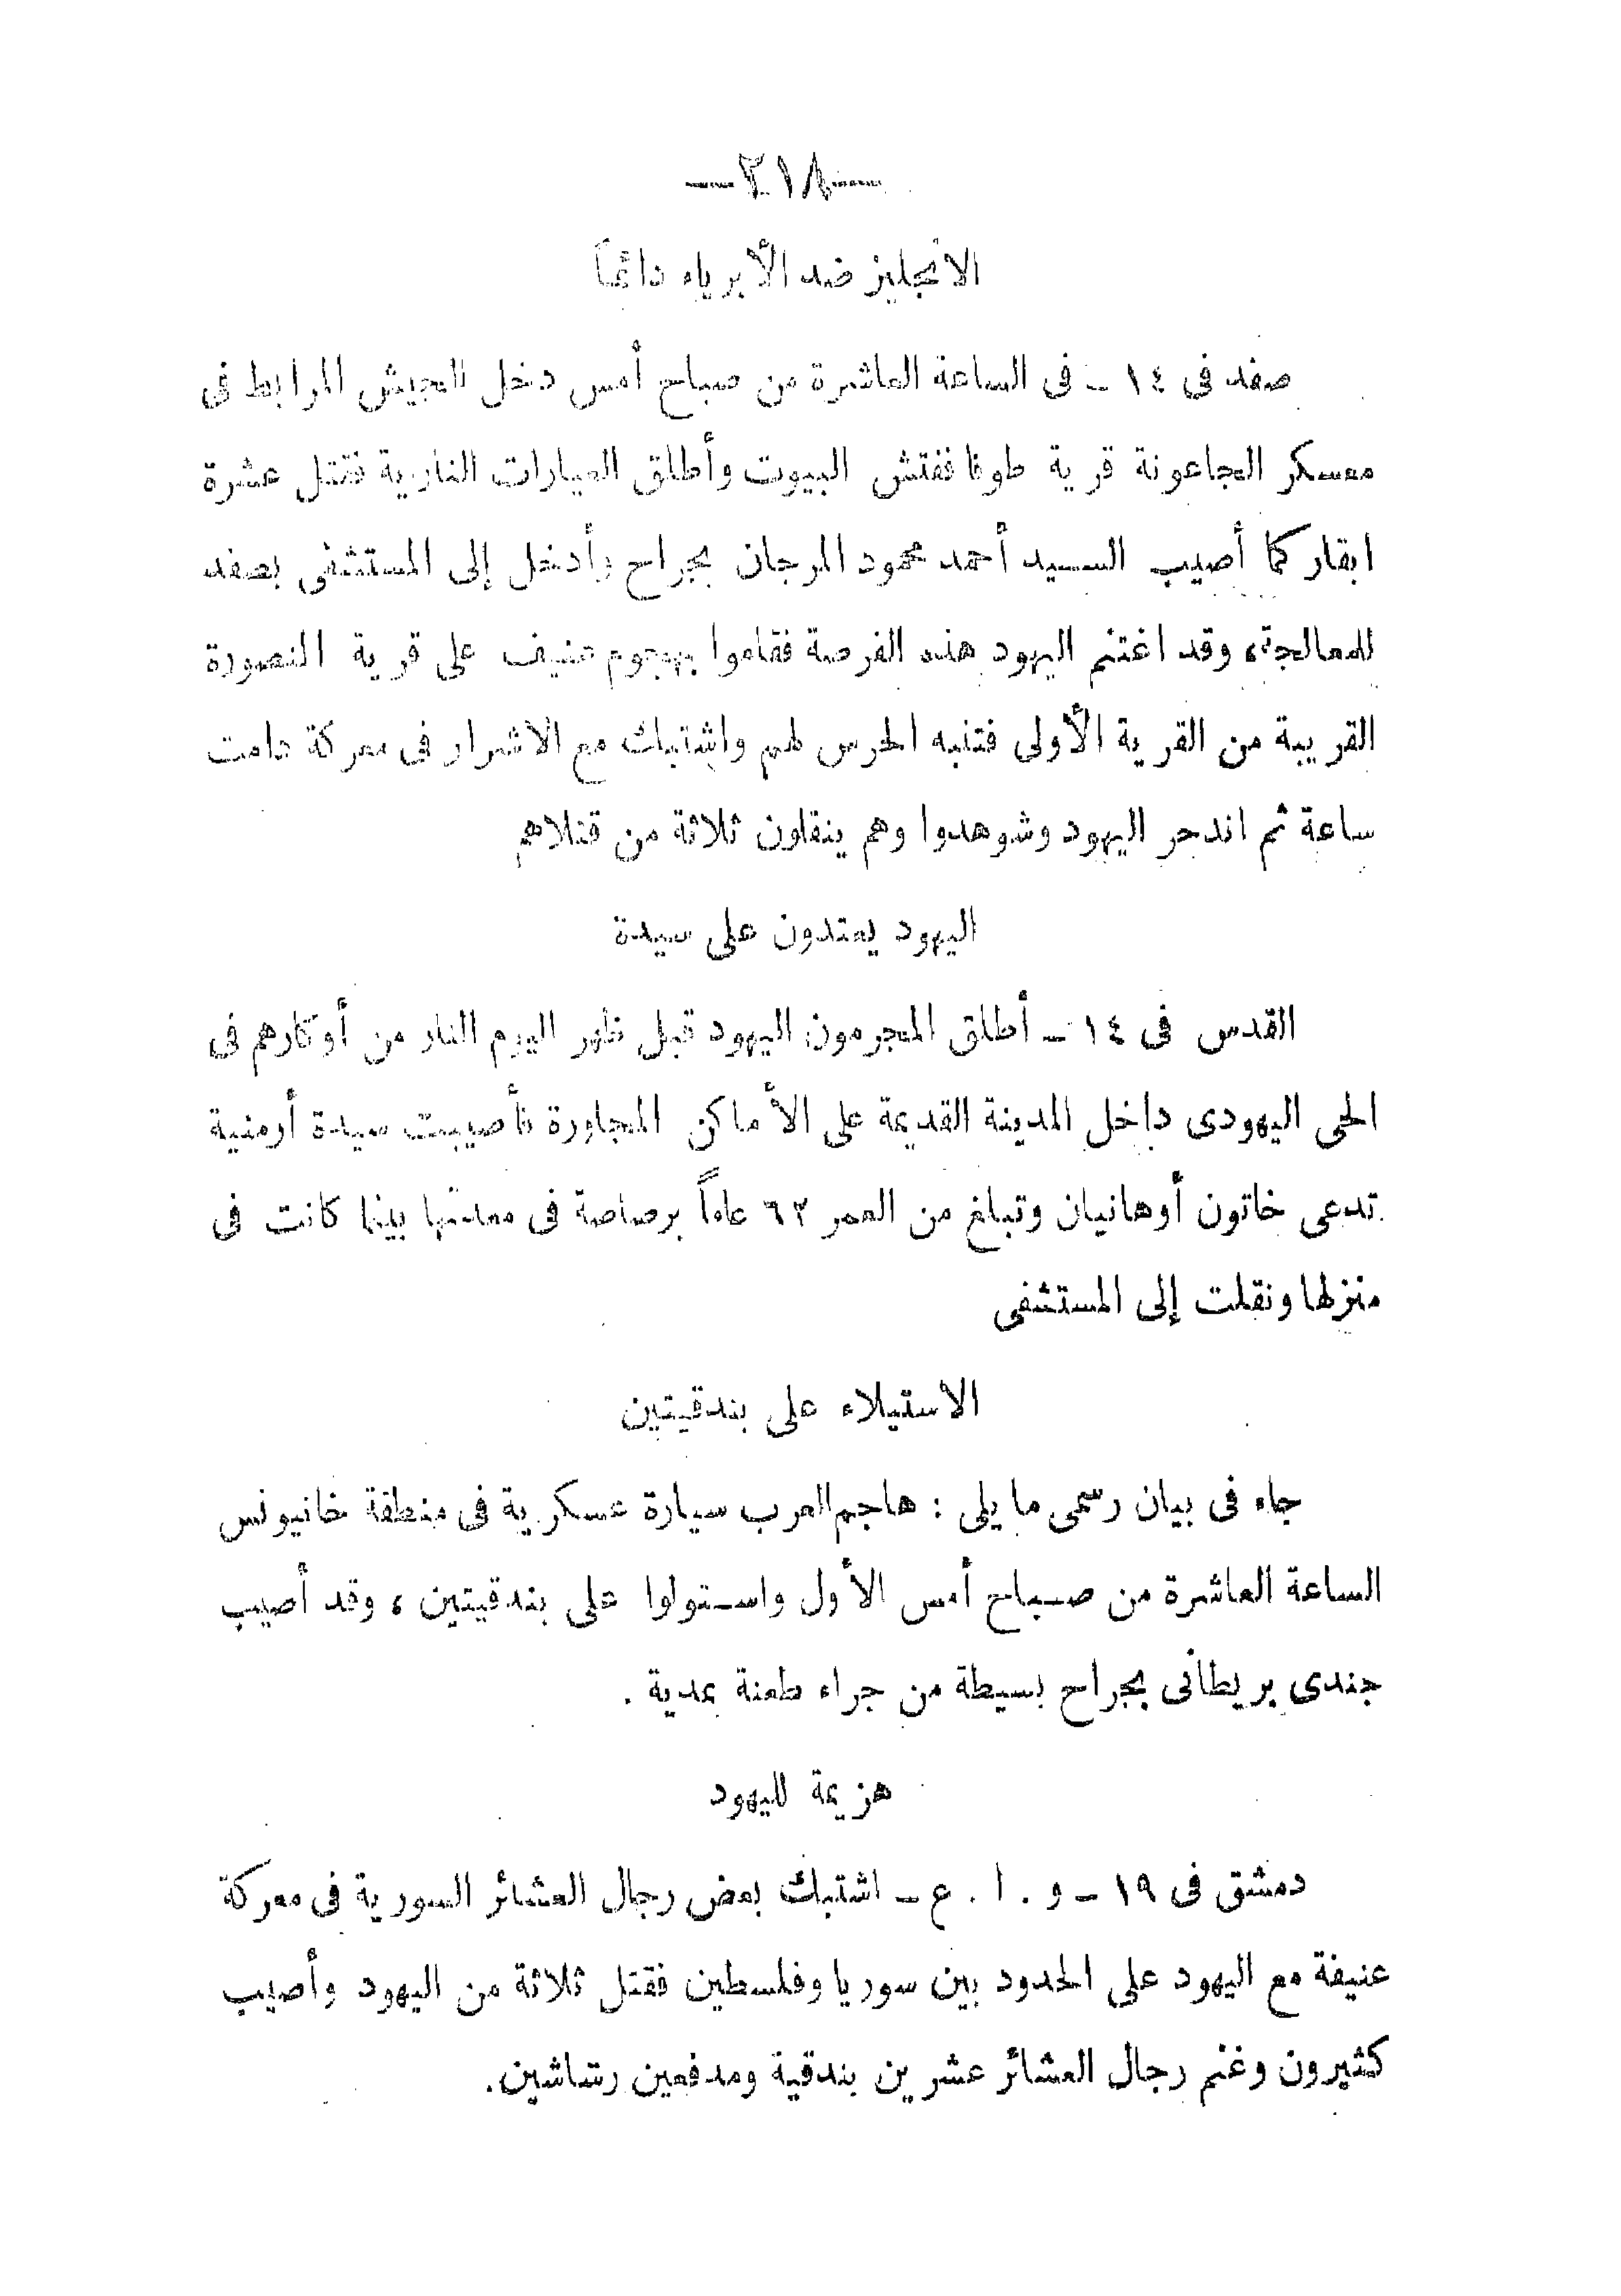 —٢١٨—
الانجليز ضد الأبرياء دائماً
صفد فى ١٤ ــ فى الساعة العاشرة من صباح أمس دخل الجيش المرابط فى
معسكر الجاعونة قرية طوبا ففتش البيوت وأطلق العيارات النارية فقتل عشرة
ابقار كما أصيب السيد أحمد محمود المرجان بجراح وأدخل إلى المستشفى بصفد
للمعالجة، وقد اغتنم اليهود هذه الفرصة فقاموا بهجوم عنيف على قرية المنصورة
القريبة من القرية الأولى فتنبه الحرس لهم واشتبك مع الاشرار فى معركة دامت
ساعة ثم اندحر اليهود وشوهدوا وهم ينقلون ثلاثة من قتلاهم
اليهود يعتدون على سيدة
القدس فى ١٤ ــ أطلق المجرمون اليهود قبل ظهر اليوم النار من أوكارهم فى
الحى اليهودى داخل المدينة القديمة على الأماكن المجاورة فأصيبت سيدة أرمنية
تدعى خاتون أوهانيان وتبلغ من العمر ٦٢ عاماً برصاصة فى معدتها بينما كانت فى
منزلها ونقلت إلى المستشفى
الاستيلاء على بندقيتين
جاء فى بيان رسمى ما يلى : هاجم العرب سيارة عسكرية فى منطقة خانيونس
الساعة العاشرة من صباح أمس الأول واستولوا على بندقيتين ، وقد أصيب
جندى بريطانى بجراح بسيطة من جراء طعنة بمدية .
هزيمة لليهود
دمشق فى ١٩ ــ و . ا . ع ــ اشتبك بعض رجال العشائر السورية فى معركة
عنيفة مع اليهود على الحدود بين سوريا وفلسطين فقتل ثلاثة من اليهود وأصيب
كثيرون وغنم رجال العشائر عشرين بندقية ومدفعين رشاشين.